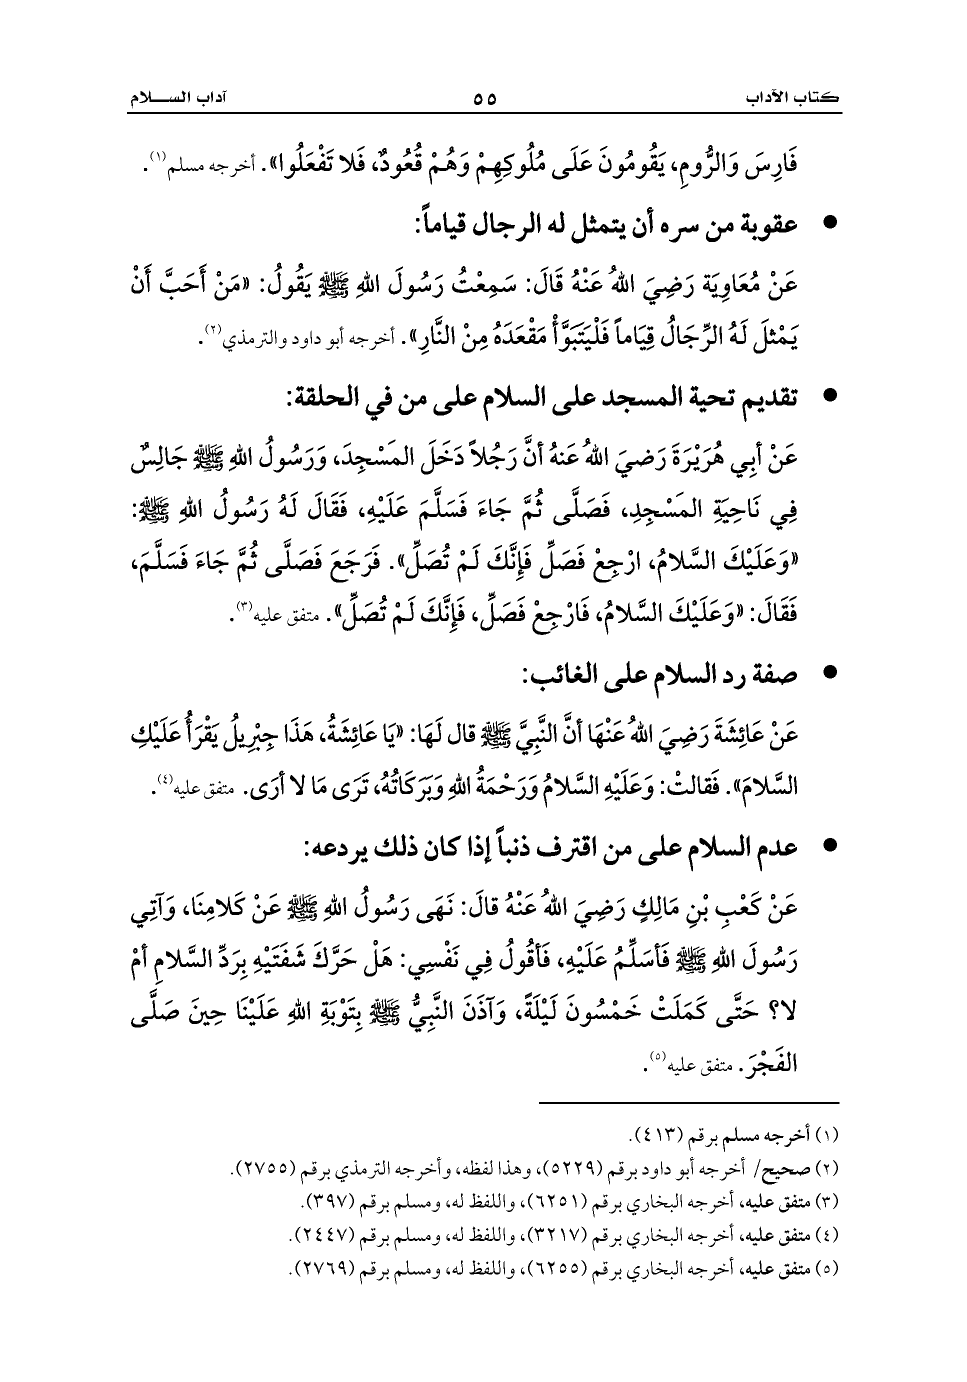 كتاب الآداب ٥٥ آداب الســـلام
فَارِسَ وَالرُّومِ، يَقُومُونَ عَلَى مُلُوكِهِمْ وَهُمْ قُعُودٌ، فَلا تَفْعَلُوا». أخرجه مسلم(١).
● عقوبة من سره أن يتمثل له الرجال قياماً:
عَنْ مُعَاوِيَة رَضِيَ اللهُ عَنْهُ قَالَ: سَمِعْتُ رَسُولَ اللهِ ﷺ يَقُولُ: «مَنْ أَحَبَّ أَنْ
يَمْثلَ لَهُ الرِّجَالُ قِيَاماً فَلْيَتَبَوَّأْ مَقْعَدَهُ مِنْ النَّارِ». أخرجه أبو داود والترمذي(٢).
● تقديم تحية المسجد على السلام على من في الحلقة:
عَنْ أبِي هُرَيْرَةَ رَضيَ اللهُ عَنهُ أنَّ رَجُلاً دَخَلَ المَسْجِدَ، وَرَسُولُ اللهِ ﷺ جَالِسٌ
فِي نَاحِيَةِ المَسْجِدِ، فَصَلَّى ثُمَّ جَاءَ فَسَلَّمَ عَلَيْهِ، فَقَالَ لَهُ رَسُولُ اللهِ ﷺ:
«وَعَلَيْكَ السَّلامُ، ارْجِعْ فَصَلِّ فَإِنَّكَ لَمْ تُصَلِّ». فَرَجَعَ فَصَلَّى ثُمَّ جَاءَ فَسَلَّمَ،
فَقَالَ: «وَعَلَيْكَ السَّلامُ، فَارْجِعْ فَصَلِّ، فَإِنَّكَ لَمْ تُصَلِّ». متفق عليه(٣).
● صفة رد السلام على الغائب:
عَنْ عَائِشَةَ رَضِيَ اللهُ عَنْهَا أنَّ النَّبِيَّ ﷺ قال لَهَا: «يَا عَائِشَةُ، هَذَا جِبْرِيلُ يَقْرَأُ عَلَيْكِ
السَّلامَ». فَقالتْ: وَعَلَيْهِ السَّلامُ وَرَحْمَةُ اللهِ وَبَرَكَاتُهُ، تَرَى مَا لا أرَى. متفق عليه(٤).
● عدم السلام على من اقترف ذنباً إذا كان ذلك يردعه:
عَنْ كَعْبِ بْنِ مَالِكٍ رَضِيَ اللهُ عَنْهُ قالَ: نَهَى رَسُولُ اللهِ ﷺ عَنْ كَلامِنَا، وَآتِي
رَسُولَ اللهِ ﷺ فَأسَلِّمُ عَلَيْهِ، فَأقُولُ فِي نَفْسِي: هَلْ حَرَّكَ شَفَتَيْهِ بِرَدِّ السَّلامِ أمْ
لا؟ حَتَّى كَمَلَتْ خَمْسُونَ لَيْلَةً، وَآذَنَ النَّبِيُّ ﷺ بِتَوْبَةِ اللهِ عَلَيْنَا حِينَ صَلَّى
الفَجْرَ. متفق عليه(٥).
(١) أخرجه مسلم برقم (٤١٣).
(٢) صحيح/ أخرجه أبو داود برقم (٥٢٢٩)، وهذا لفظه، وأخرجه الترمذي برقم (٢٧٥٥).
(٣) متفق عليه، أخرجه البخاري برقم (٦٢٥١)، واللفظ له، ومسلم برقم (٣٩٧).
(٤) متفق عليه، أخرجه البخاري برقم (٣٢١٧)، واللفظ له، ومسلم برقم (٢٤٤٧).
(٥) متفق عليه، أخرجه البخاري برقم (٦٢٥٥)، واللفظ له، ومسلم برقم (٢٧٦٩).